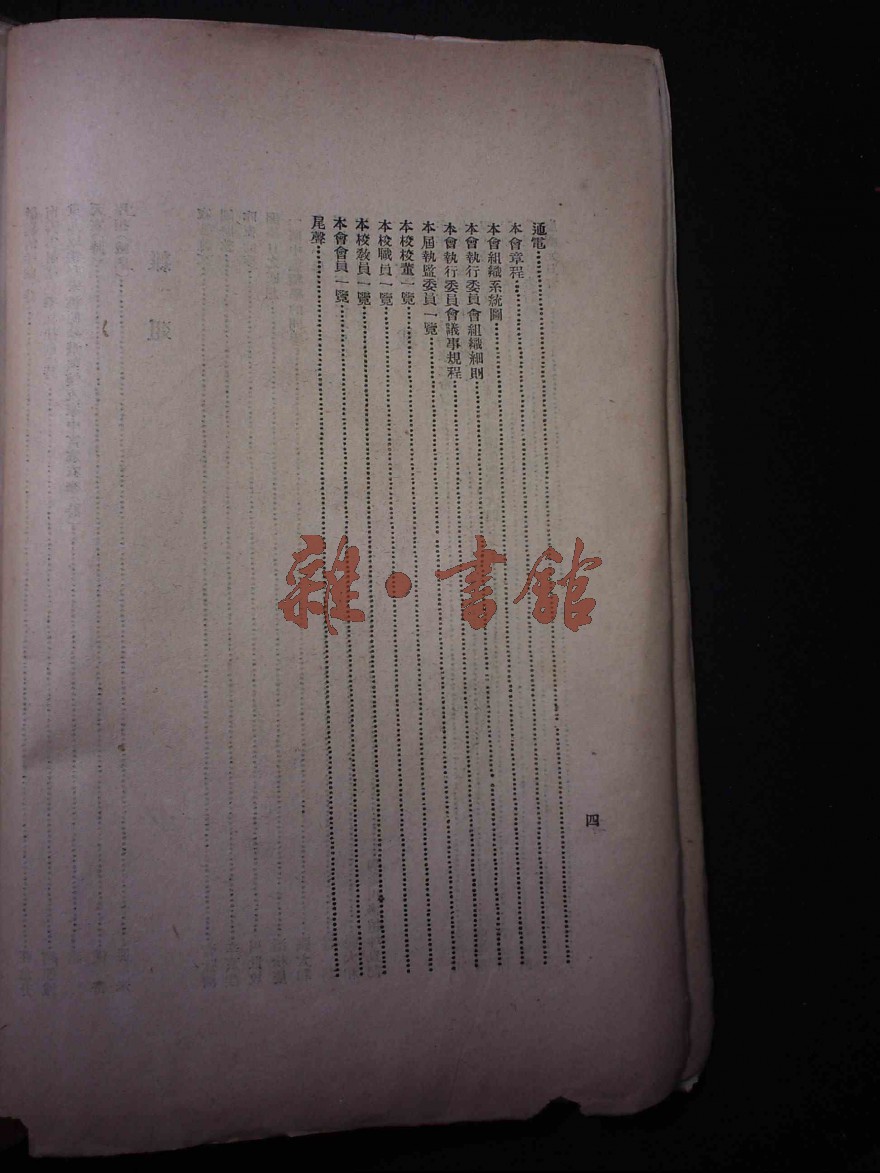 通電
本會章程
本會組織系統圖
本會執行委員會組織細則
本會執行委員會議事規程
本屆執監委員一覽
本校校董一覽
本校職員一覽
本校敎員一覽
本會會員一覽
尾聲
四
雜·書館